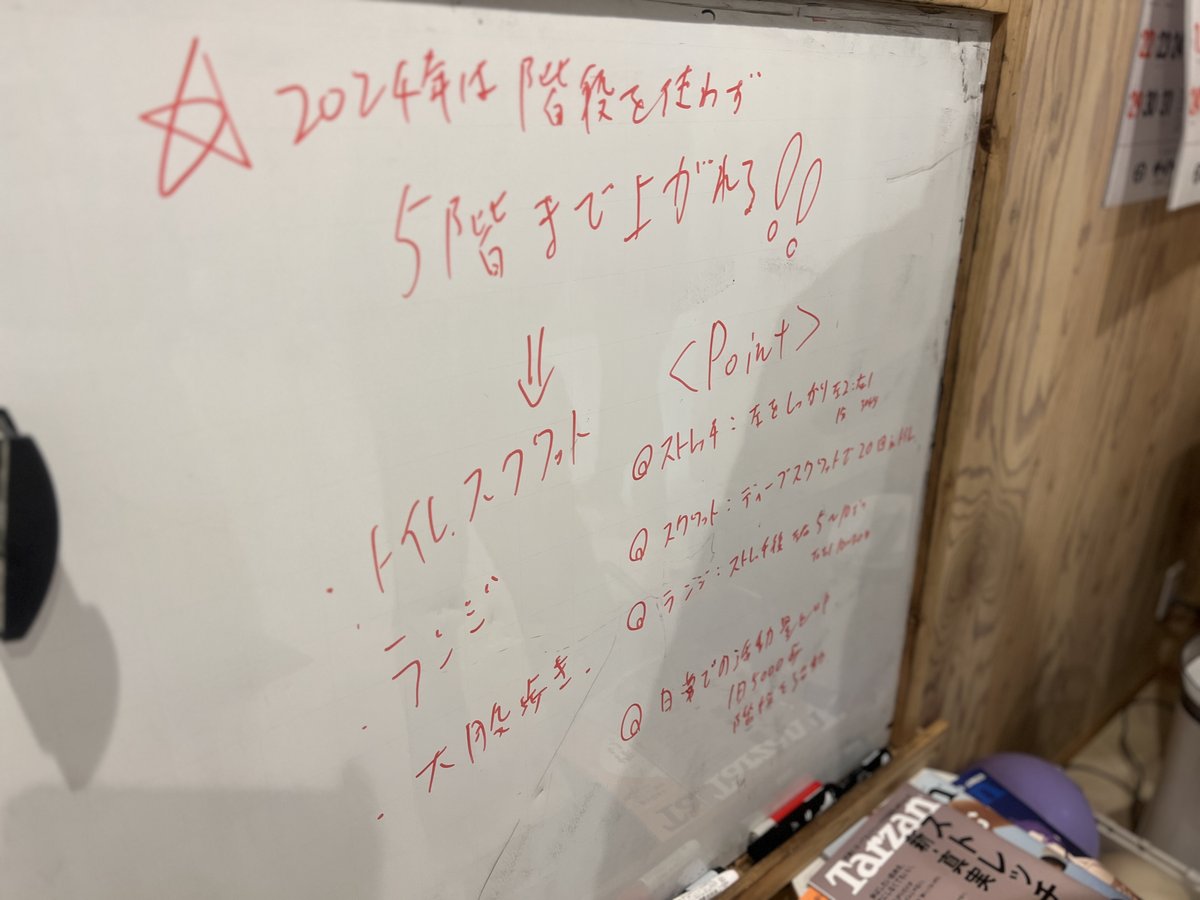 ☆ 2024年は階段を使わず
5階まで上がれる!!
⇓
・トイレスクワット
・ランジ
・大股歩き.
<Point>
@ストレッチ:左をしっかり 左2:右1
@スクワット:ディープスクワットで20回
@ランジ:ストレッチ後 左右5〜10
@日常での活動量
1日5000歩
階段を
Tarzan
ストレッチ
新・真実